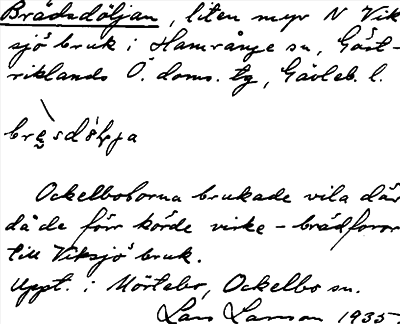 Brädsdöljan, liten myr N Vik
sjö bruk i Hamrånge sn, Gäst-
riklands Ö. doms. tg, Gävleb. l.
Ockelboborna brukade vila där
då de förr körde virke - brädforor
till Viksjö bruk.
Uppt. i Mörtebo, Ockelbo sn.
Lars Larsson 1935.